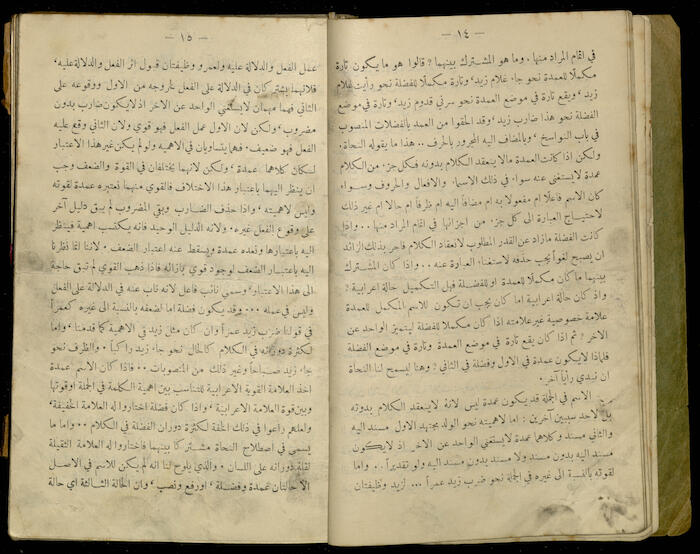 — ١٤ —
في اتمام المراد منها. وما هو المشترك بينهما؟ قالوا هو ما يكون تارة
مكملًا للعمدة نحو جاء غلام زيد، وتارة مكملًا للفضلة نحو رأيت غلام
زيد، ويقع تارة في موضع العمدة نحو سرني قدوم زيد، وتارة في موضع
الفضلة نحو هذا ضارب زيد، وقد الحقوا من العمد بالفضلات المنصوب
في باب النواسخ، وبالمضاف اليه المجرور بالحرف.. هذا ما يقوله النحاة.
ولكن اذا كانت العمدة مالا ينعقد الكلام بدونه فكل جزء من الكلام
عمدة لا يستغنى عنه سواء في ذلك الاسماء والافعال والحروف وسواء
كان الاسم فاعلًا ام مفعولا به ام مضافاً اليه ام ظرفاً ام حالا ام غير ذلك
لاحتياج العبارة الى كل جزء من اجزائها في اتمام المراد منها.. واذا
كانت الفضلة مازاد عن القدر المطلوب لانعقاد الكلام فاحر بذلك الزائد
ان يصبح لغواً يجب حذفه لاستغناء العبارة عنه.. واذا كان المشترك
بينهما ما كان مكملًا للعمدة او للفضلة فهل التكميل حالة اعرابية؟
واذ كان حالة اعرابية اما كان يجب ان تكون للاسم المكمل للعمدة
علامة خصوصية غير علامته اذا كان مكملا للفضلة ليتميز الواحد عن
الاخر؟ ثم اذا كان يقع تارة في موضع العمدة وتارة في موضع الفضلة
فلماذا لا يكون عمدة في الاول وفضلة في الثاني؟ وهنا ليسمح لنا النحاة
ان نبدي رأياً آخر.
الاسم في الجملة قد يكون عمدة ليس لانه لا ينعقد الكلام بدونه
بل لاحد سببين آخرين: اما لاهميته نحو الولد مجتهد الاول مسند اليه
والثاني مسند وكلاهما عمدة لا يستغنى الواحد عن الآخر اذ لا يكون
مسند اليه بدون مسند ولا مسند بدون مسند اليه ولو تقديراً.. واما
لقوته بالنسبة الى غيره في الجملة نحو ضرب زيد عمراً... لزيد وظيفتان
— ١٥ —
عمل الفعل والدلالة عليه ولعمرو وظيفتان قبول اثر الفعل والدلالة عليه،
فلانهما يشتركان في الدلالة على الفعل بخروجه من الاول ووقوعه على
الثاني فهما مهمان لا يستغنى الواحد عن الاخر اذ لا يكون ضارب بدون
مضروب، ولكن لان الاول عمل الفعل فهو قوي ولان الثاني وقع عليه
الفعل فهو ضعيف. فهما يتساويان في الاهمية ولو لم يكن غير هذا الاعتبار
لكان كلاهما عمدة، ولكن لانهما يختلفان في القوة والضعف وجب
ان ينظر اليهما باعتبار هذا الاختلاف فالقوي منهما نعتبره عمدة لقوته
وليس لاهميته، واذا حذف الضارب وبقي المضروب لم يبق دليل آخر
على وقوع الفعل غيره. ولانه الدليل الوحيد فانه يكتسب اهمية فينظر
اليه باعتبارها ونعده عمدة ويسقط عنه اعتبار الضعف. لاننا انما نظرنا
اليه باعتبار الضعف لوجود قوي بازائه فاذا ذهب القوي لم تبق حاجة
الى هذا الاعتبار، وسمي نائب فاعل لانه ناب عنه في الدلالة على الفعل
وليس في عمله... وقد يكون فضلة اما لضعفه بالنسبة الى غيره كعمراً
في قولنا ضرب زيد عمراً وان كان مثل زيد في الاهمية كما قدمنا، واما
لكثرة دورانه في الكلام كالحال نحو جاء زيد راكباً.. والظرف نحو
جاء زيد صباحاً وغير ذلك من المنصوبات.. فاذا كان الاسم عمدة
اخذ العلامة القوية الاعرابية للتناسب بين اهمية الكلمة في الجملة اوقوتها
وبين قوة العلامة الاعرابية، واذا كان فضلة اختاروا له العلامة الخفيفة،
ولعلهم راعوا في ذلك الخفة لكثرة دوران الفضلة في الكلام.. واما ما
يسمى في اصطلاح النحاة مشتركا بينهما فاختاروا له العلامة الثقيلة
لقلة دورانه على اللسان. والذي يلوح لنا انه لم يكن للاسم في الاصل
الا حالتان عمدة وفضلة، اورفع ونصب، وان الحالة الثالثة اي حالة